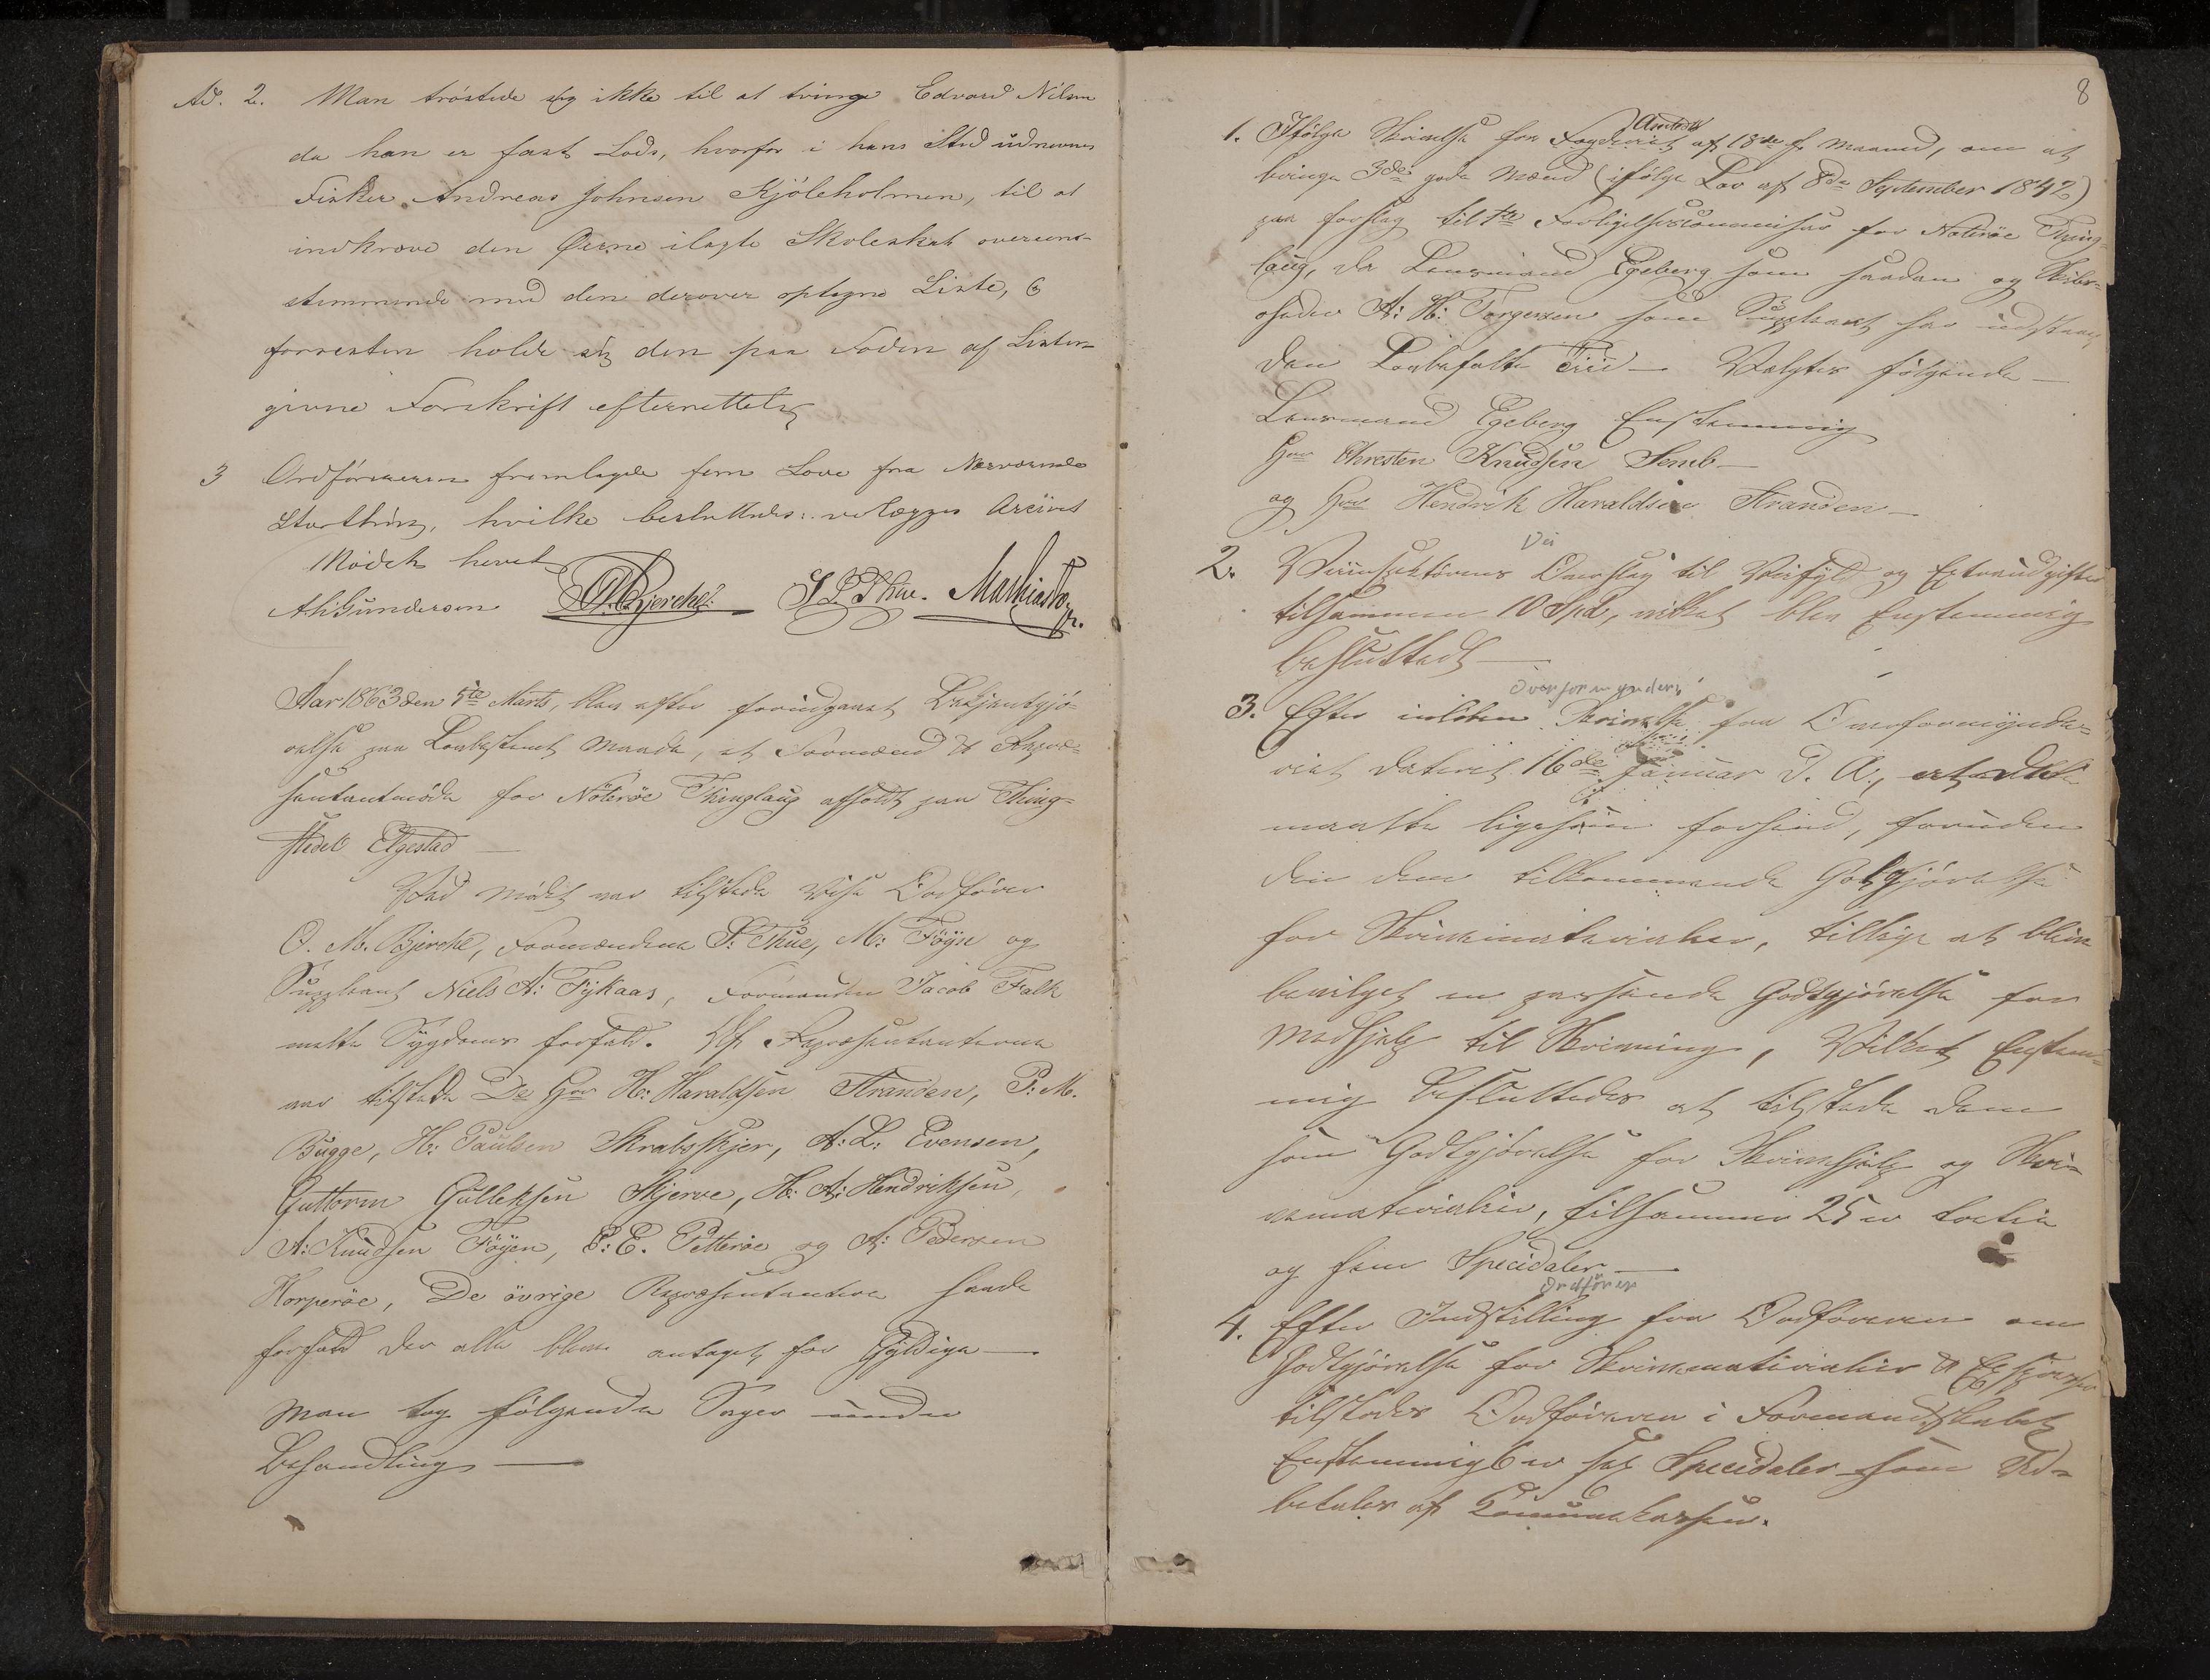 Ad. 2. Man tröstede sig ikke til at tvinge Edvard Nilsen
da han er fast Lods, hvorfor i hans Sted udnevnes
Fisker Andreas Johnsen Kjöleholmen, til at
indkræve den Øerne ilagte Skoleskat overens-
stemmende med den derover optagne Liste, &
forresten holde sig den paa Foden af Listen
givne Forskrift efterrettelig
3 Ordföreren fremlagde fem Love fra Nærværende
Storthing, hvilke besluttedes: vedlægges Arcivet
Mödet hevet
A. H. Gundersen O. M. Bjercke S. P. Thue. Mathias Föyn.
Aar 1863 den 5te Marts, blev efter foregaaet Bekjentgjö-
relse paa Lovbestemt Maade, et Formænd & Repræ-
sentantmöde for Nöteröe Thinglaug afholdt paa Thing-
stedet Elgestad
Ved mödet var tilstede Vise Ordförer
O. M. Bjercke, Formændene P: Thue, M: Föyn og
Suppleant Niels A: Fykaas, Formanden Jacob Falk
meldte Sygdoms forfald. Af Repræsentanterne
var tilstede De Hrr H: Haraldsen Stranden, P: M.
Bugge, H: Paulsen Skrabsskjer, A: L: Evensen,
Guttorm Gulleksen Skjerve, H: A: Hendriksen,
A: Knudsen Föyen, P: E. Petteröe og A: Pedersen
Horperöe, De övrige Repræsentanter havde
forfald der alle bleve antaget for Gyldige
Man tog fölgende Sager under
Behandling
8
1. Ifölge Skrivelse fra Fogderiet af 18de f. Maaned, om at
bringe 3de gode Mænd (ifölge Lov af 8de September 1842)
paa forslag til Forligelseskommisær for Nöteröe Thing-
laug, da Lensmand Egeberg som saadan og Skibs-
rheder A: H: Torgersen som Suppleant har udstaaet
den Lovbefalte Tiid Valgtes fölgende
Lensmand Egeberg Enstemmig
Hrr Christen Knudsen Semb
og Hrr Hendrik Haraldsen Stranden
Vei
2. Veiinspektörens Overslag til Veifyld og Extraudgifter
tilsammen 10 Spd, vilket blev Enstemmig
besluttedt
Overformynderi
3. Efter indkom Skrivelse fra Overformynde-
riet dateret 16de Januar D. A., at dette
maatte ligesom forhend, foruden
den dem tilkommende Godtgjörelse
for Skrivematerialier, tillige at blive
bevilget en passende Godtgjörelse for
Medhjelp til Skrivning, Vilket Enstem-
mig besluttedes at tilstede dem
som Godtgjörelse for Skrivehjelp og Skri-
vematerialier, tilsammen 25 er tyve
og fem Specidaler
Ordförer
4. Efter Indstilling fra Ordföreren om
Godtgjörelse for Skrivematerialier &
tilstodes Ordföreren i Formandskabet
Enstemmig 6 er sex Specidaler som Ud-
betales af Communekassen.